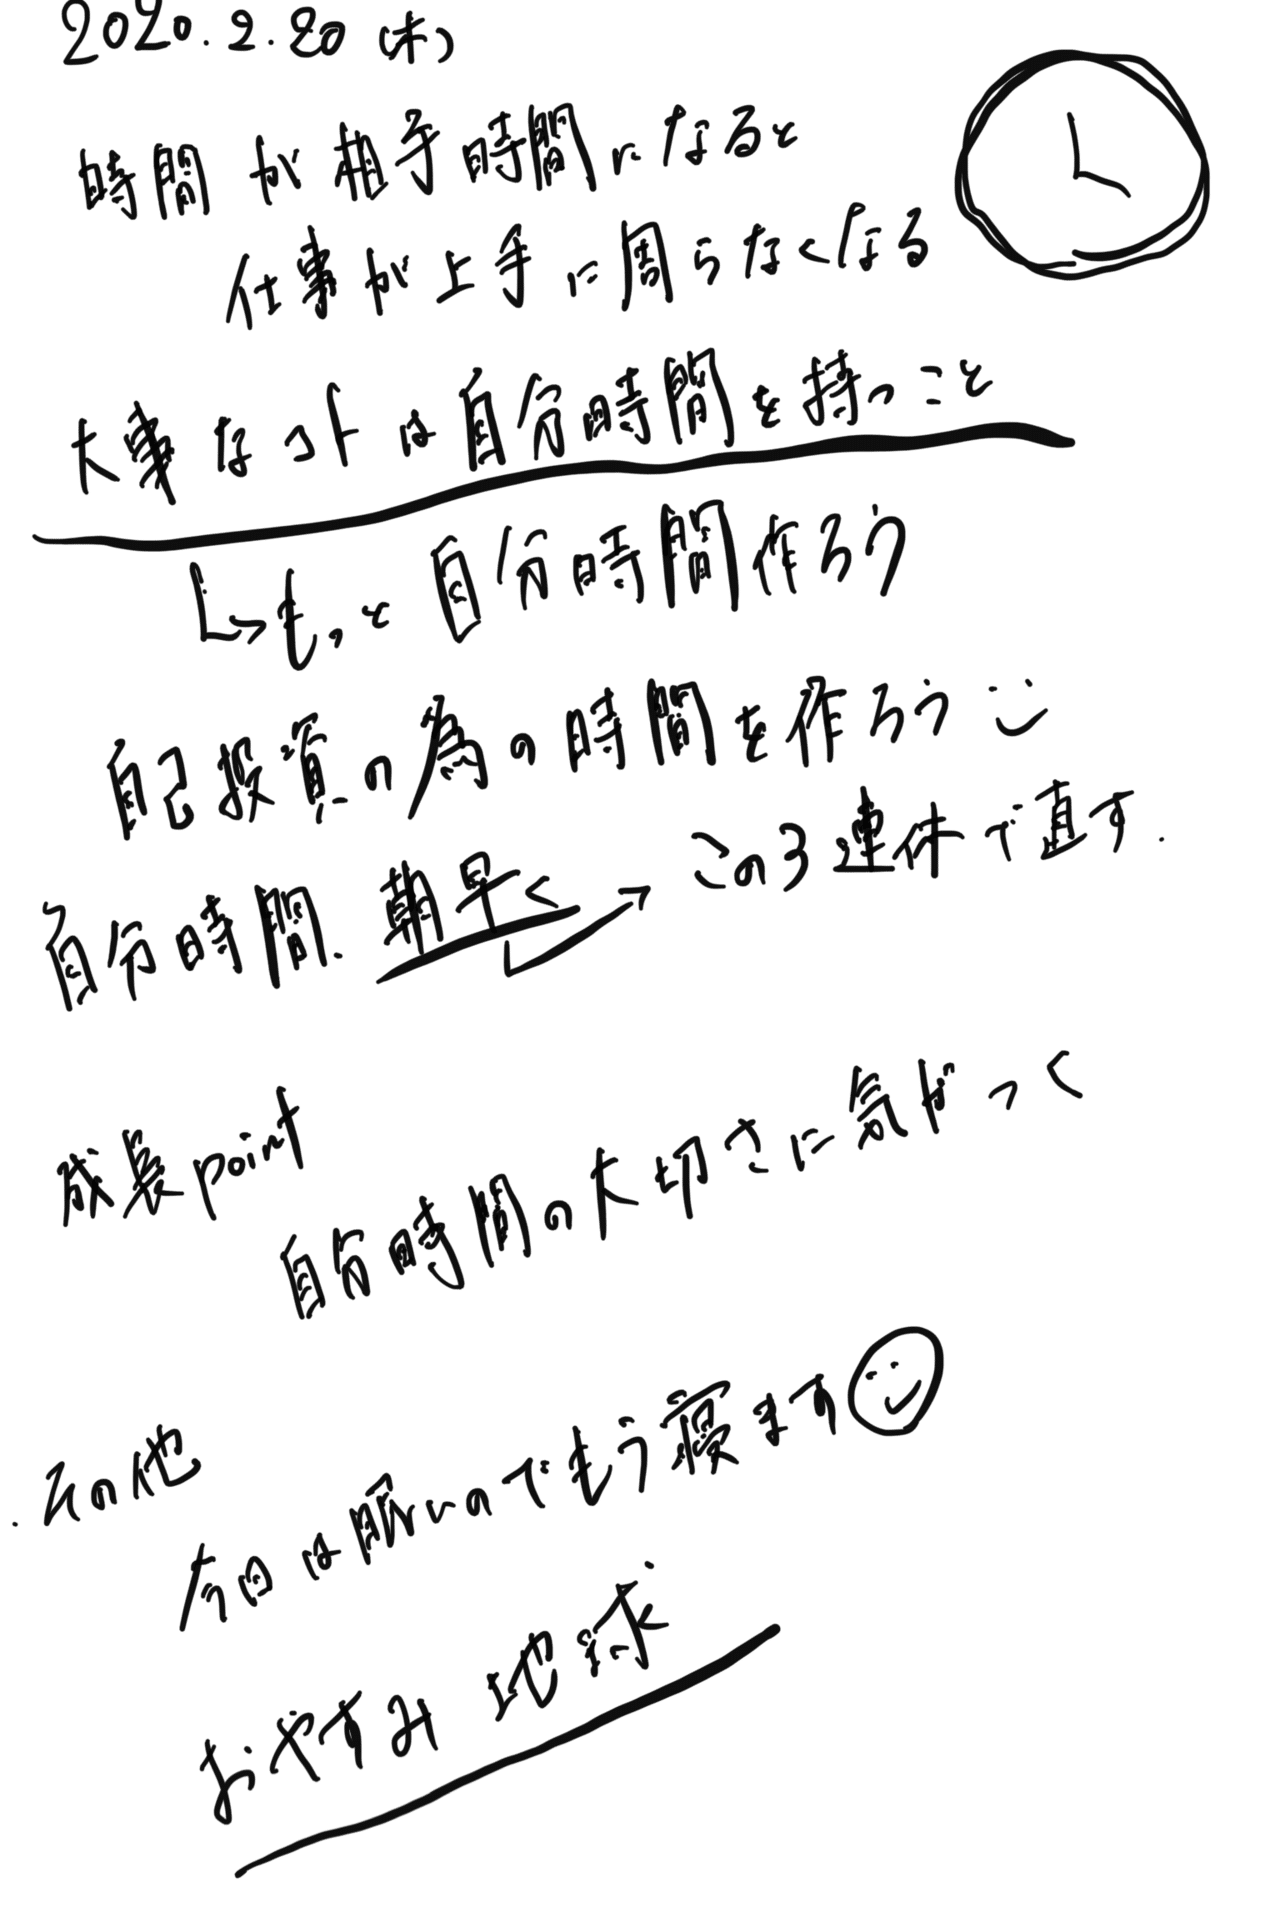 2020.2.20 (木)
時間が相手時間になると
仕事が上手に周らなくなる
大事なコトは自分時間を持つこと
もっと自分時間作ろう
自己投資の為の時間を作ろう
自分時間.朝早く この3連休で直す.
成長point
自分時間の大切さに気がつく
.その他
今日は眠いのでもう寝ます
おやすみ地球